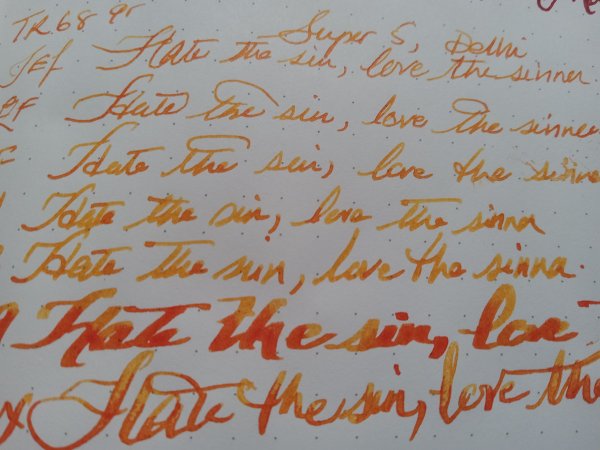 TR68 gr
Super 5, Delhi
JEf Hate the sin, love the sinner
EF Hate the sin, love the sinner
F Hate the sin, love the sinner
Hate the sin, love the sinner
Hate the sin, love the sinner.
Hate the sin, love
x Hate the sin, love the